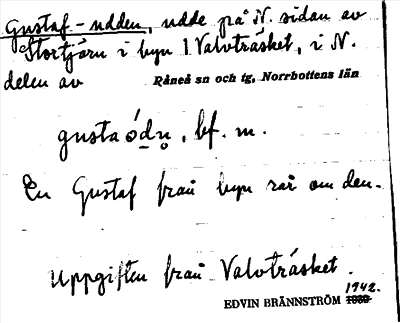 Gustaf-udden, udde på N. sidan av
Stortjärn i byn 1 Valvträsket, i N.
delen av Råneå sn och tg, Norrbottens län
gusta ó̱du̥, bf. m.
En Gustaf från byn rår om den.
Uppgiften från Valvträsket.
1942.
EDVIN BRÄNNSTRÖM 1939